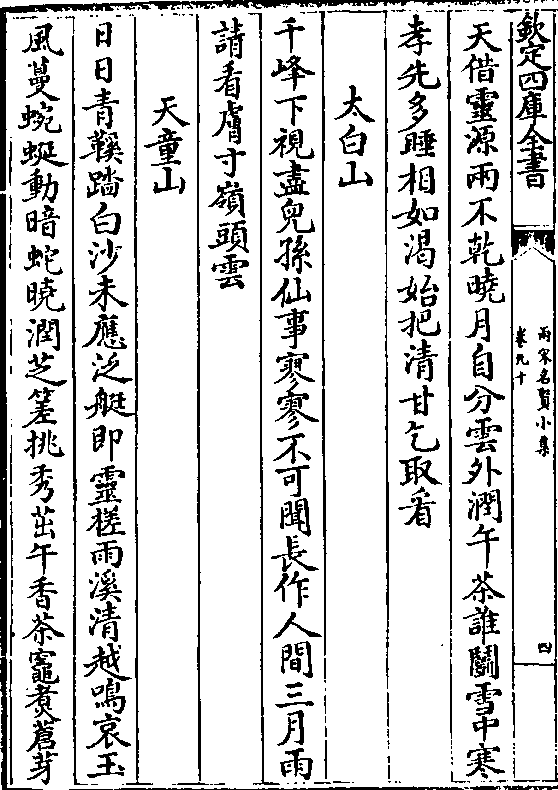 欽定四庫全書
兩宋名賢小集
卷九十
四
天借靈源雨不乾曉月自分雲外潤午茶誰鬭雪中寒
孝先多睡相如渴始把清甘乞取看
太白山
千峰下視盡兒孫仙事寥寥不可聞長作人間三月雨
請看膚寸嶺頭雲
天童山
日日青鞵踏白沙未應泛艇即靈槎雨溪清越鳴哀玉
風蔓蜿蜒動暗蛇曉潤芝笭挑秀茁午香茶竈煑蒼芽